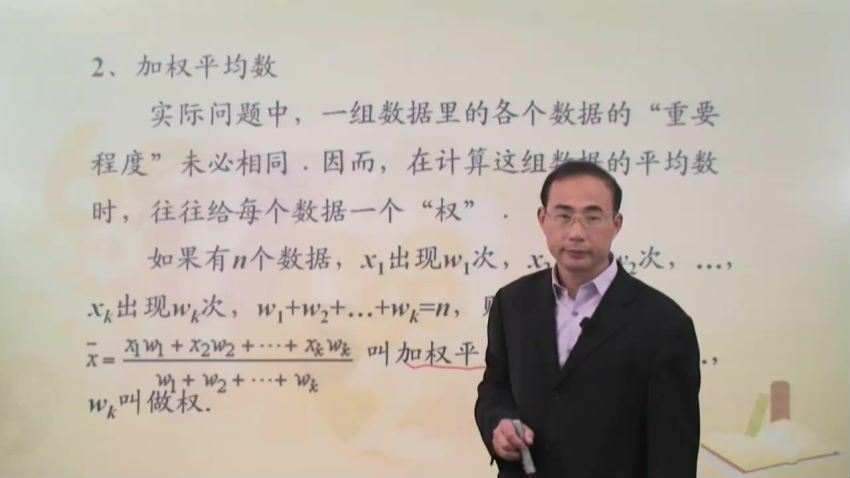 2、加权平均数
实际问题中，一组数据里的各个数据的“重要
程度”未必相同．因而，在计算这组数据的平均数
时，往往给每个数据一个“权”．
如果有n个数据，x₁出现w₁次，x₂ w₂次，…，
xₖ出现wₖ次，w₁+w₂+…+wₖ=n，
x̄ = (x₁w₁ + x₂w₂ + ⋯ + xₖwₖ) / (w₁ + w₂ + ⋯ + wₖ) 叫加权平 ，
wₖ叫做权．